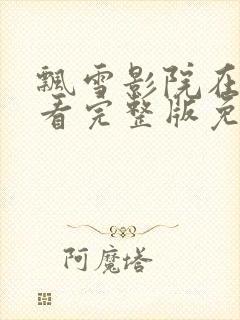 飘雪影院在
看完整版免
阿魔塔